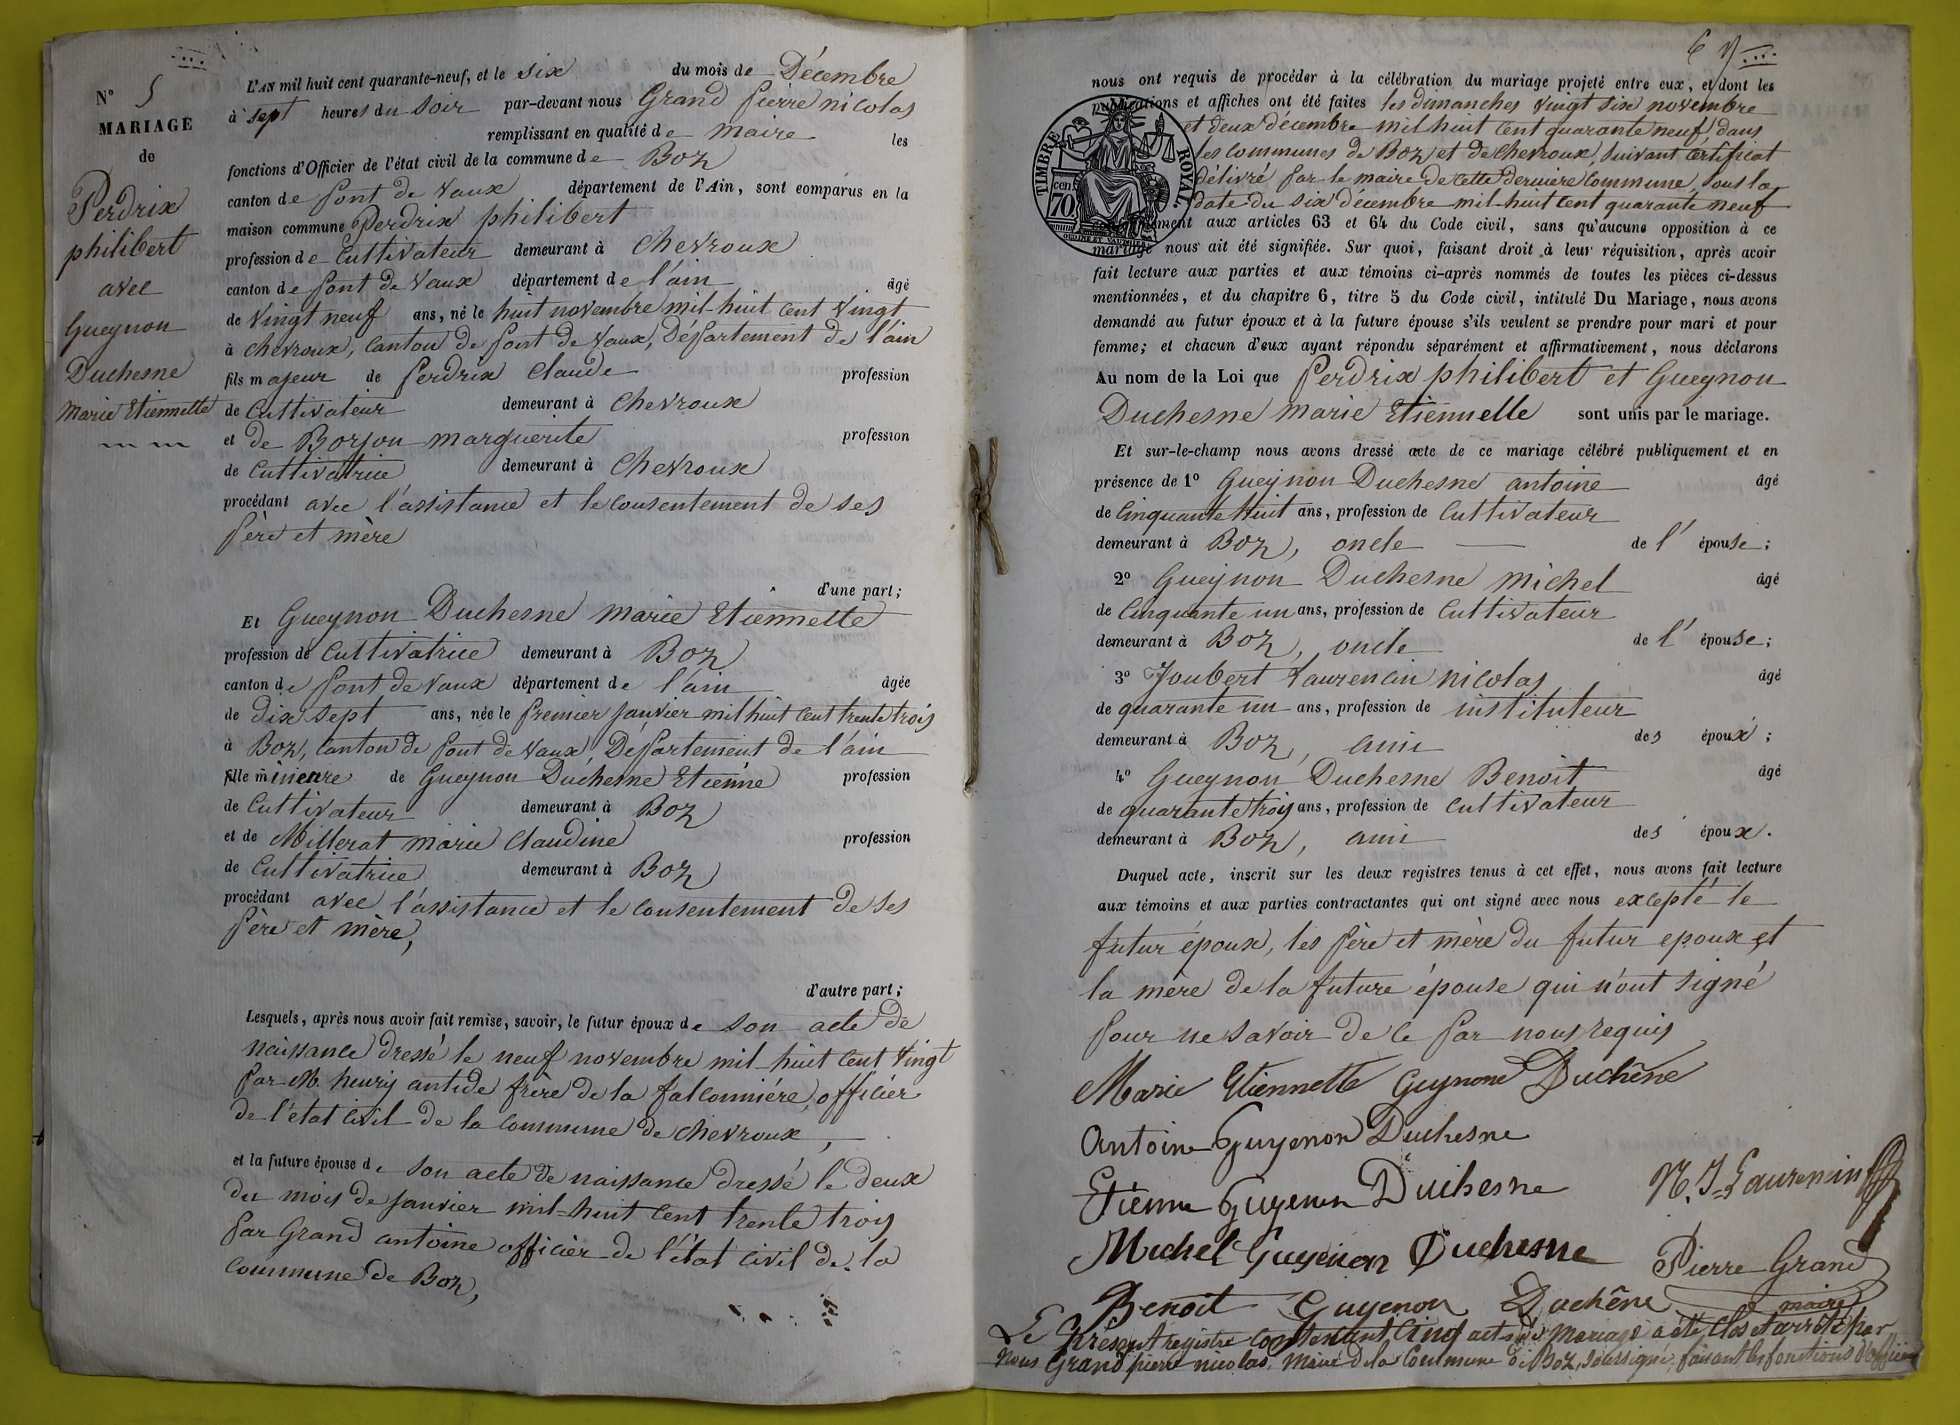 N° 5
MARIAGE
de
Perdrix
philibert
avec
Gueynon
Duchesne
Marie Etiennette
L'AN mil huit cent quarante-neuf, et le six du mois de Décembre
à sept heures du soir par-devant nous Grand Pierre nicolas
remplissant en qualité de maire les
fonctions d'Officier de l'état civil de la commune de Boz
canton de Pont de Vaux département de l'Ain, sont comparus en la
maison commune Perdrix philibert
profession de Cultivateur demeurant à Chevroux
canton de Pont de Vaux département de l'ain âgé
de Vingt neuf ans, né le huit novembre mil huit cent vingt
à Chevroux, Canton de Pont de Vaux, Département de l'ain
fils majeur de Perdrix Claude profession
de Cultivateur demeurant à Chevroux
et de Borjon marguerite profession
de Cultivatrice demeurant à Chevroux
procédant avec l'assistance et le Consentement de ses
Père et mère
d'une part;
Et Gueynon Duchesne Marie Etiennette
profession de Cultivatrice demeurant à Boz
canton de Pont de Vaux département de l'ain âgée
de dix sept ans, née le premier janvier mil huit cent trente trois
à Boz, Canton de Pont de Vaux, Département de l'ain
fille mineure de Gueynon Duchesne Etienne profession
de Cultivateur demeurant à Boz
et de Millerat marie Claudine profession
de Cultivatrice demeurant à Boz
procédant avec l'assistance et le Consentement de ses
Père et mère,
d'autre part;
Lesquels, après nous avoir fait remise, savoir, le futur époux de son acte de
naissance dressé le neuf novembre mil huit cent vingt
par M. henry antide frère de la falconnière, officier
de l'état civil de la Commune de Chevroux,
et la future épouse de son acte de naissance dressé le deux
du mois de janvier mil-huit cent trente trois
par Grand antoine officier de l'état civil de la
Commune de Boz,
nous ont requis de procéder à la célébration du mariage projeté entre eux, et dont les
publications et affiches ont été faites les dimanches vingt six novembre
et deux décembre mil huit cent quarante neuf, dans
les communes de Boz et de Chevroux, suivant certificat
délivré par le maire de cette dernière Commune, sous la
date du six décembre mil-huit cent quarante neuf
TIMBRE ROYAL.
cen.
70.
aux articles 63 et 64 du Code civil, sans qu'aucune opposition à ce
mariage nous ait été signifiée. Sur quoi, faisant droit à leur réquisition, après avoir
fait lecture aux parties et aux témoins ci-après nommés de toutes les pièces ci-dessus
mentionnées, et du chapitre 6, titre 5 du Code civil, intitulé Du Mariage, nous avons
demandé au futur époux et à la future épouse s'ils veulent se prendre pour mari et pour
femme; et chacun d'eux ayant répondu séparément et affirmativement, nous déclarons
Au nom de la Loi que Perdrix philibert et Gueynon
Duchesne marie Etiennette sont unis par le mariage.
Et sur-le-champ nous avons dressé acte de ce mariage célébré publiquement et en
présence de 1° Gueynon Duchesne antoine âgé
de Cinquante huit ans, profession de Cultivateur
demeurant à Boz, oncle de l'épouse;
2° Gueynon Duchesne michel âgé
de Cinquante un ans, profession de Cultivateur
demeurant à Boz, oncle de l'épouse;
3° Joubert Laurencin nicolas âgé
de quarante un ans, profession de instituteur
demeurant à Boz, ami des époux;
4° Gueynon Duchesne Benoit âgé
de quarante trois ans, profession de Cultivateur
demeurant à Boz, ami des époux.
Duquel acte, inscrit sur les deux registres tenus à cet effet, nous avons fait lecture
aux témoins et aux parties contractantes qui ont signé avec nous excepté le
futur époux, les père et mère du futur epoux et
la mère de la future épouse qui n'ont signé
pour ne savoir de ce par nous requis
Marie Etiennette Guynone Duchêne
Antoine Guyenon Duchesne
Etienne Guyenon Duchesne
N. J. Laurencin
Michel Guyenon Duchesne
Pierre Grand
maire
Benoit Guyenon Duchêne
Le Présent registre Contenant Cinq actes de Mariage a été Clos et arrêté par
Nous Grand pierre nicolas, Maire de la Commune de Boz, soussigné, faisant les fonctions d'officier